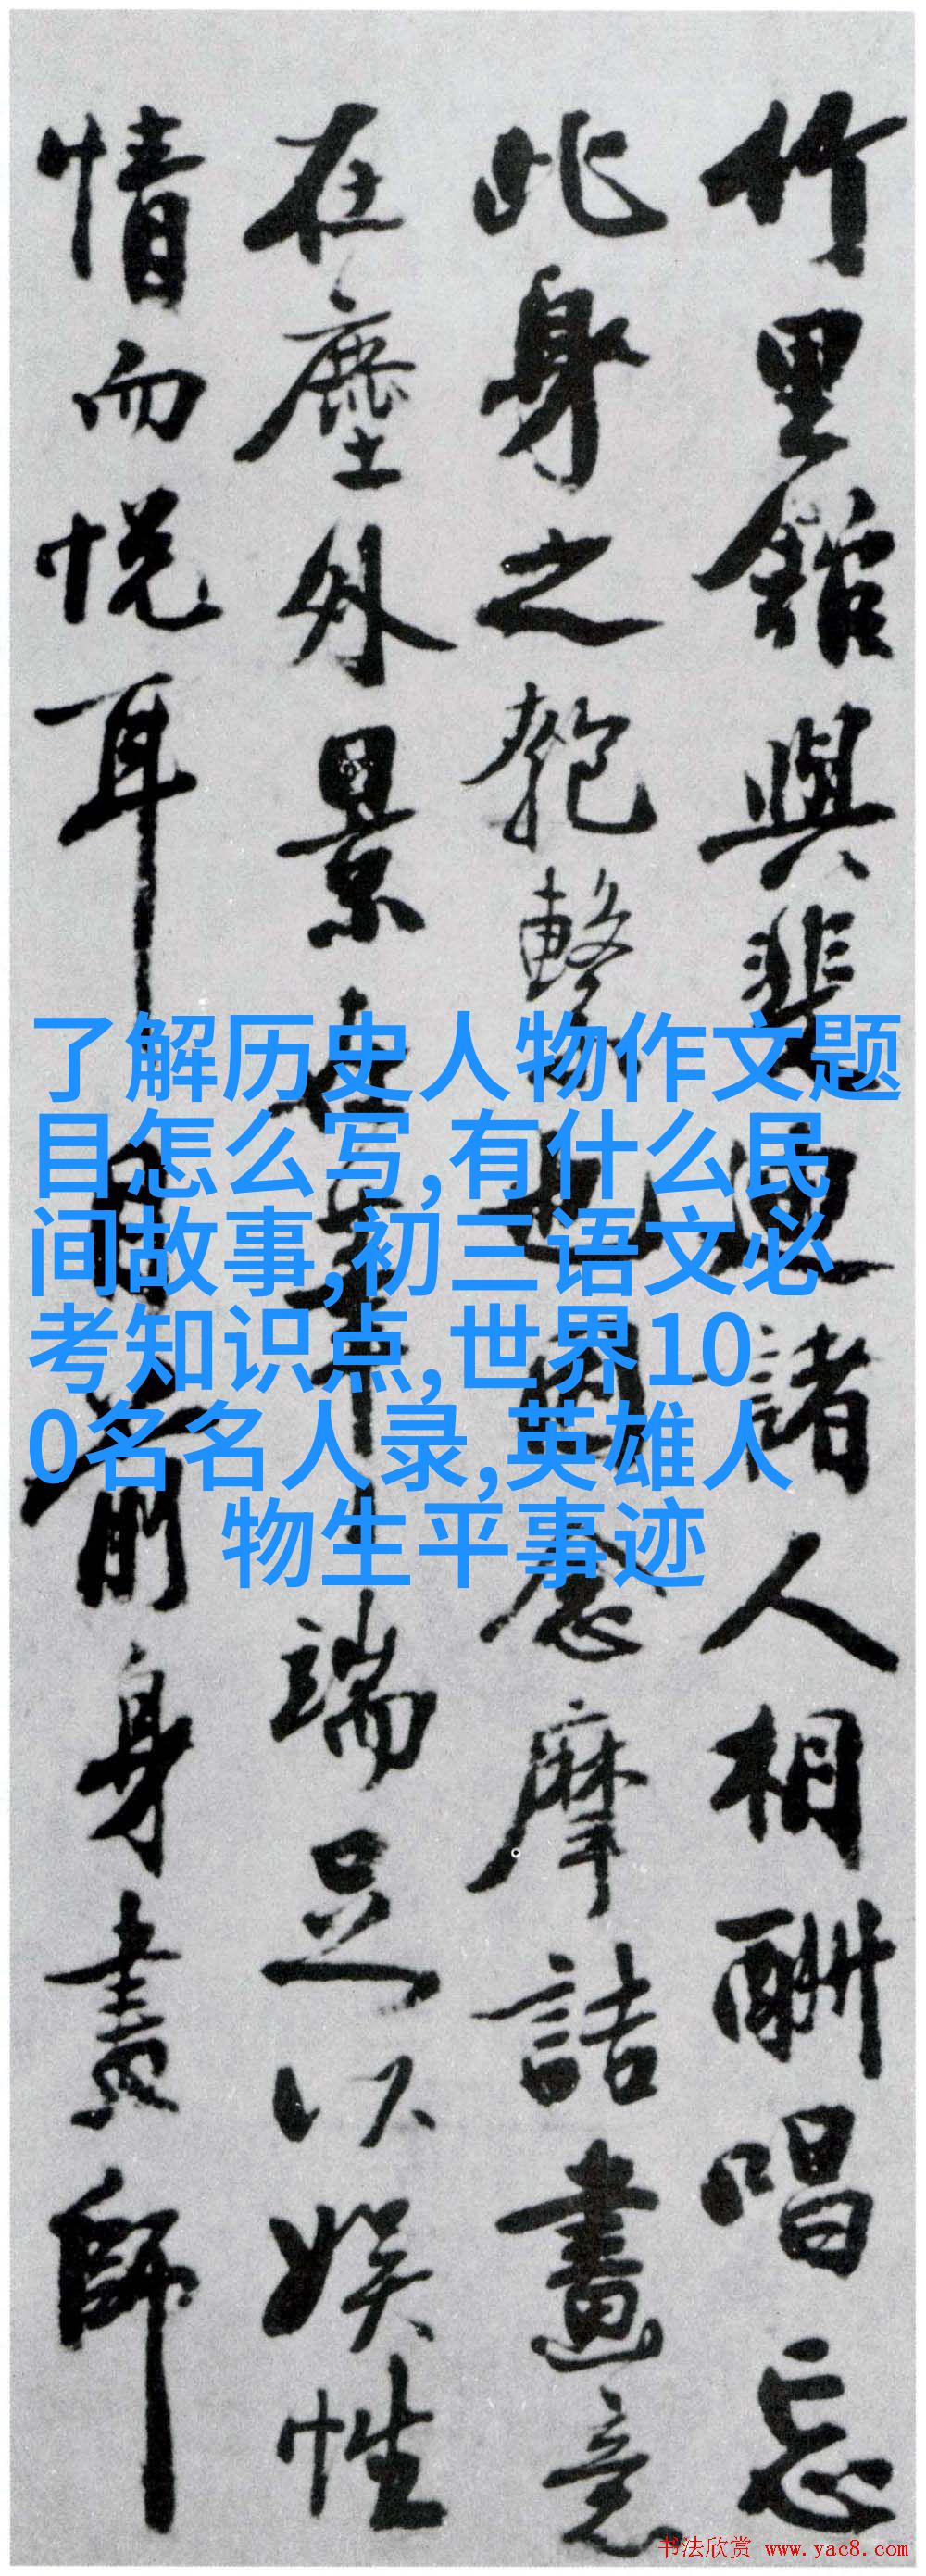 竹里館與裴迪諸人相酬唱忘
此身之匏繫也因念摩詰畫意
在塵外景在筆端足以娛性
情而悅耳目前身畫師
了解历史人物作文题
目怎么写,有什么民
间故事,初三语文必
考知识点,世界10
0名名人录,英雄人
物生平事迹
书法欣赏 www.yac8.com